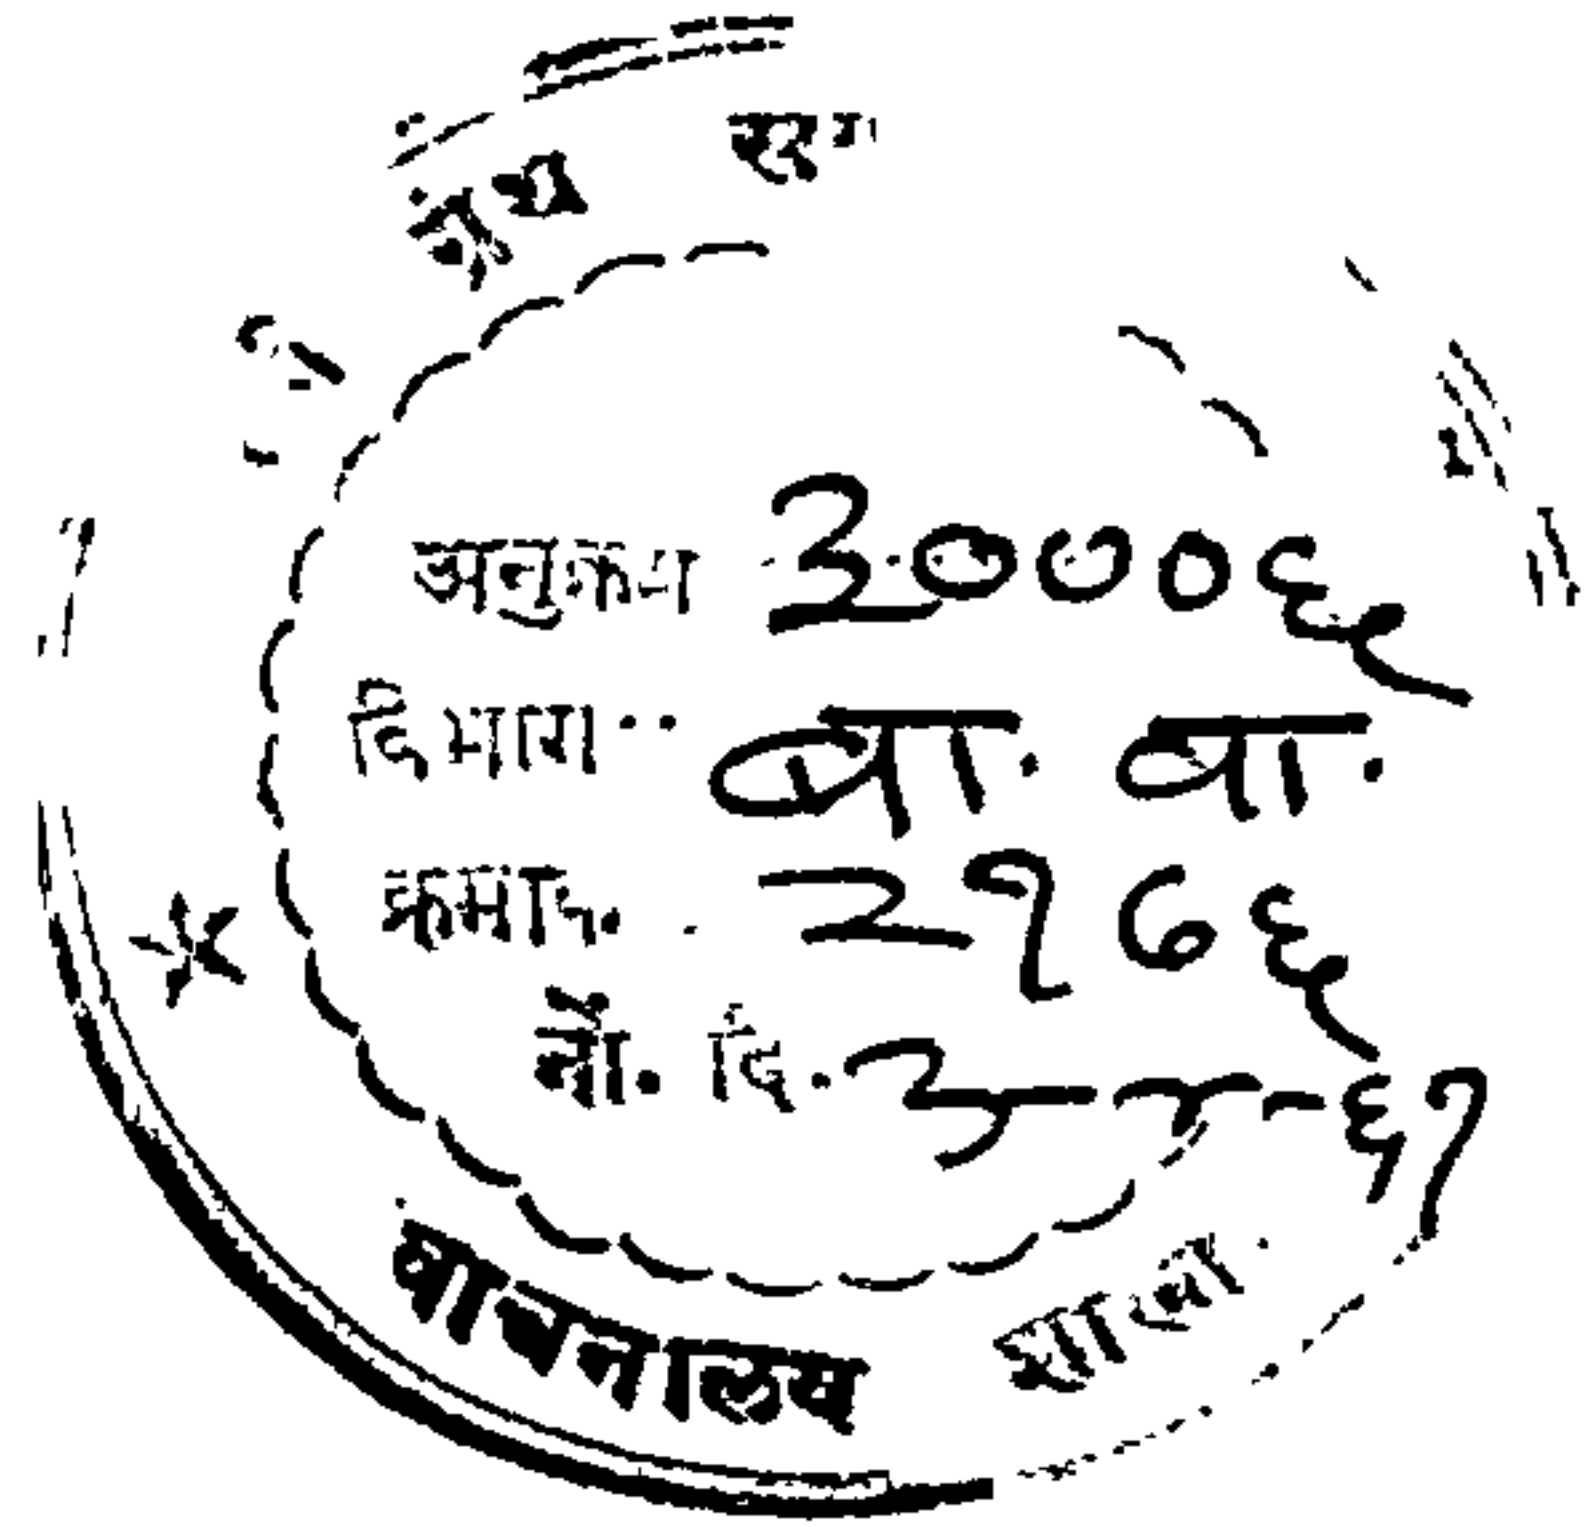 ग्रंथ
अनुक्रम ३०००६
विभाग .. बा. वा.
क्रमांक. . २१७६
नों. दि. ३-४-६१
वाचनालय शाखा.